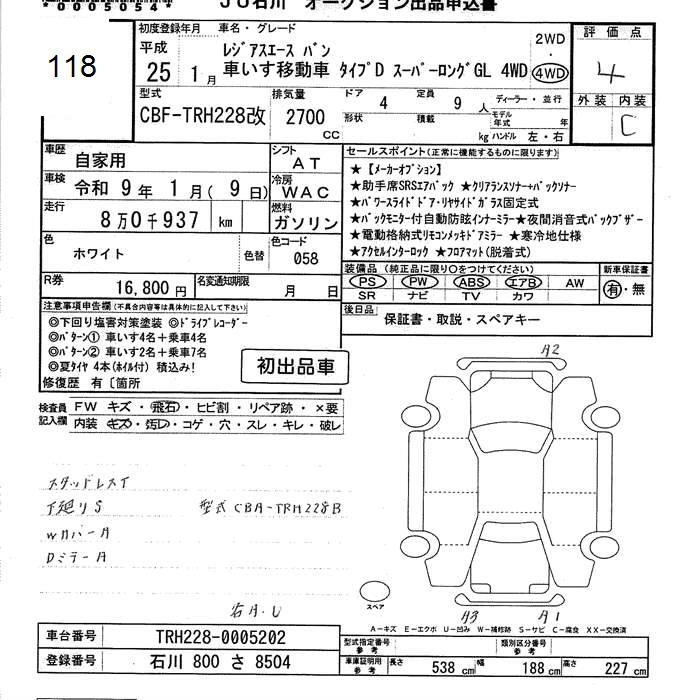 *0005054*
JU石川 オークション出品申込書
118
初度登録年月 車名・グレード
平成 25 1月
レジアスエース バン
車いす移動車 タイプD スーパーロングGL 4WD
2WD・4WD
評価点
4
外装 内装
C
型式 CBF-TRH228改
排気量 2700 cc
ドア 4 定員 9 人
形状 積載 kg
ディーラー・並行
モデル年式 年
ハンドル 左・右
車歴 自家用
シフト AT
車検 令和 9年 1月 (9日)
冷房 WAC
走行 8万0千937 km
燃料 ガソリン
色 ホワイト 色替
色コード 058
R券 16,800円
名変通知期限 月 日
セールスポイント(正常に機能するものに限ります)
★【メーカーオプション】
★助手席SRSエアバック ★クリアランスソナー+バックソナー
★パワースライドドア・リヤサイドガラス固定式
★バックモニター付自動防眩インナーミラー★夜間消音式バックブザー
★電動格納式リモコンメッキドアミラー ★寒冷地仕様
★アクセルインターロック ★フロアマット(脱着式)
装備品(純正品に限り○をつけてください)
PS PW ABS エアB AW
SR ナビ TV カワ
新車保証書
有・無
後日品 保証書・取説・スペアキー
注意事項申告欄(不具合内容等は具体的に記入して下さい)
◎下回り塩害対策塗装 ◎ドライブレコーダー
◎パターン① 車いす4名+乗車4名
◎パターン② 車いす2名+乗車7名
◎夏タイヤ 4本(ホイル付) 積込み!
修復歴 有〔箇所
初出品車
検査員記入欄
FW キズ・飛石・ヒビ割・リペア跡・×要
内装 キズ・汚レ・コゲ・穴・スレ・キレ・破レ
スタッドレスT
下廻りS 型式 CBA-TRH228B
Wカバー A
Dミラー A
右A.U
A2
スペア
A3 A1
A-キズ E-エクボ U-凹み W-補修跡 S-サビ C-腐食 XX-交換済
車台番号 TRH228-0005202
登録番号 石川 800 さ 8504
型式指定番号 参考
類別区分番号 参考
車庫証明用 参考 長さ 538 cm 幅 188 cm 高さ 227 cm